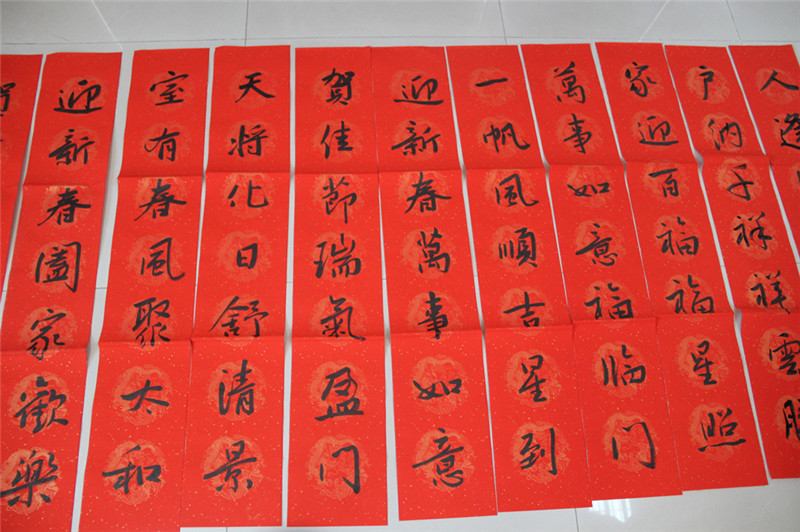 人逢
户納千祥祥雲
家迎百福福星照
萬事如意福临门
一帆風順吉星到
迎新春萬事如意
賀佳節瑞氣盈门
天将化日舒清景
室有春風聚太和
迎新春闔家歡樂